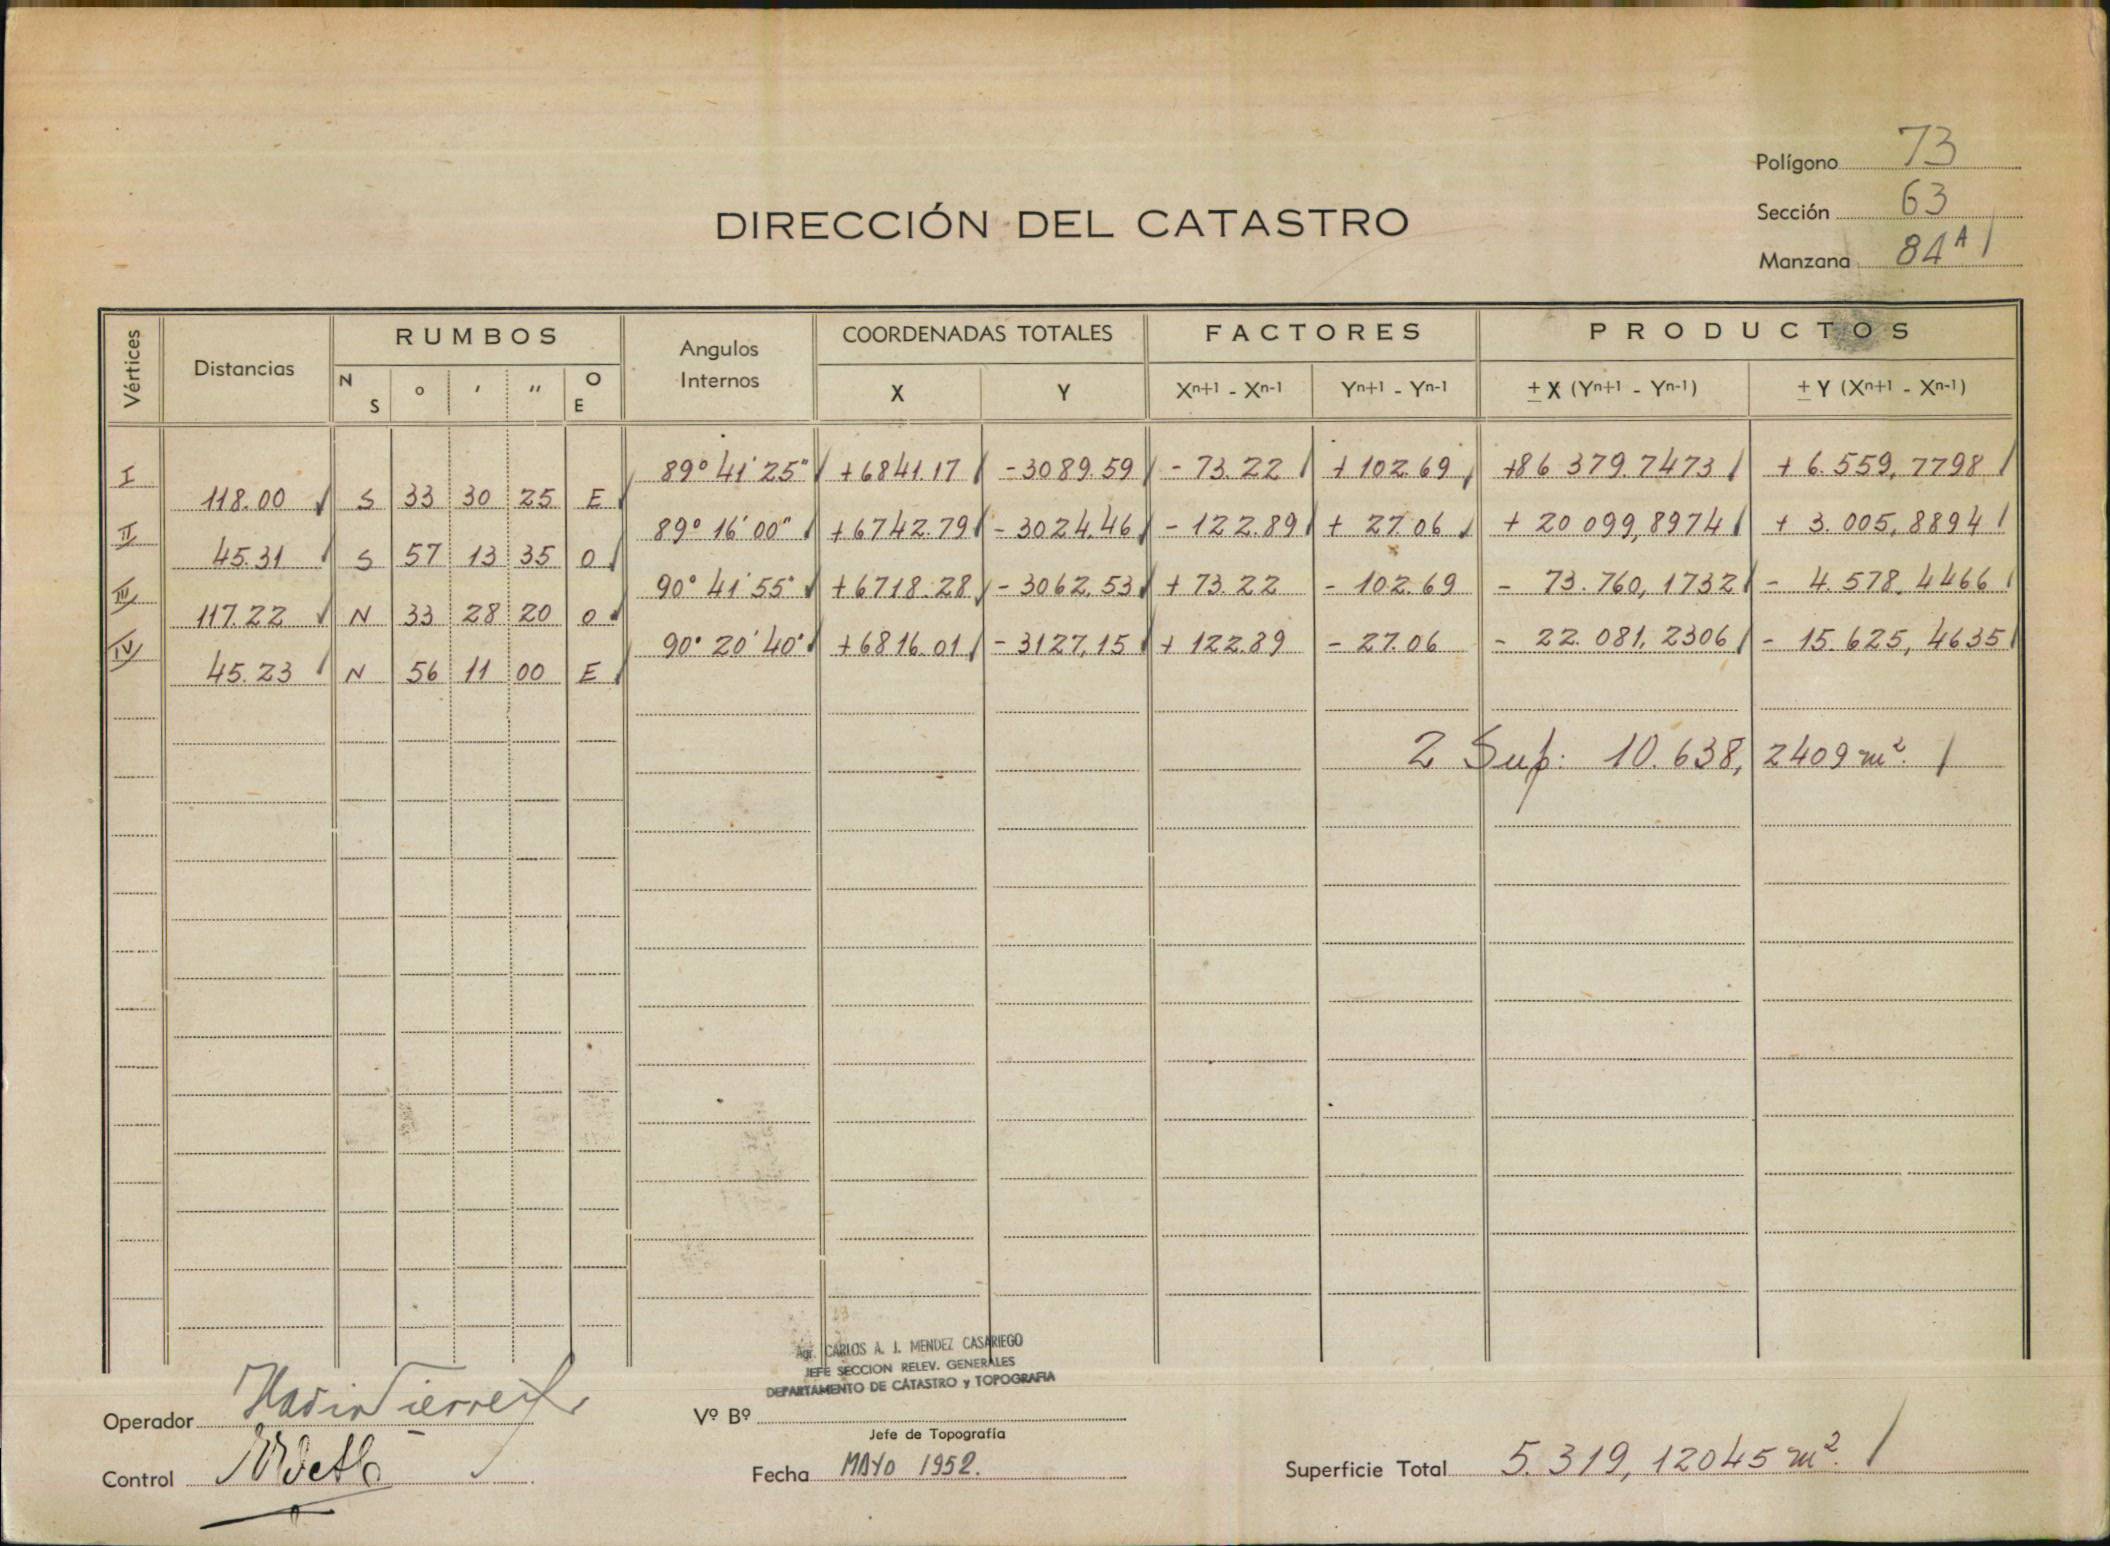 Polígono 73
Sección 63
Manzana 84 A
DIRECCIÓN DEL CATASTRO
Vértices Distancias RUMBOS Angulos Internos COORDENADAS TOTALES FACTORES PRODUCTOS
N S ° ' " O E X Y Xn+1 - Xn-1 Yn+1 - Yn-1 ± X (Yn+1 - Yn-1) ± Y (Xn+1 - Xn-1)
I 89° 41' 25" +6841.17 -3089.59 - 73.22 + 102.69 +86 379.7473 + 6.559,7798
118.00 S 33 30 25 E
II 89° 16' 00" +6742.79 - 3024.46 - 122.89 + 27.06 + 20 099,8974 + 3.005,8894
45.31 S 57 13 35 O
III 90° 41' 55" +6718.28 - 3062.53 + 73.22 - 102.69 - 73.760,1732 - 4.578.4466
117.22 N 33 28 20 O
IV 90° 20' 40" +6816.01 - 3127,15 + 122.89 - 27.06 - 22.081,2306 - 15.625,4635
45.23 N 56 11 00 E
2 Sup: 10.638,2409 m².
Agr. CARLOS A. J. MENDEZ CASARIEGO
JEFE SECCION RELEV. GENERALES
DEPARTAMENTO DE CATASTRO y TOPOGRAFIA
Operador
Vº Bº
Jefe de Topografía
Control
Fecha MAYO 1952.
Superficie Total 5.319,12045 m².